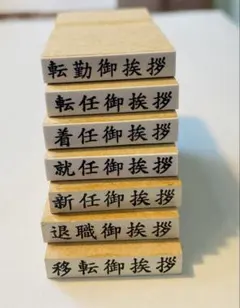 転勤御挨拶
転任御挨拶
着任御挨拶
就任御挨拶
新任御挨拶
退職御挨拶
移転御挨拶